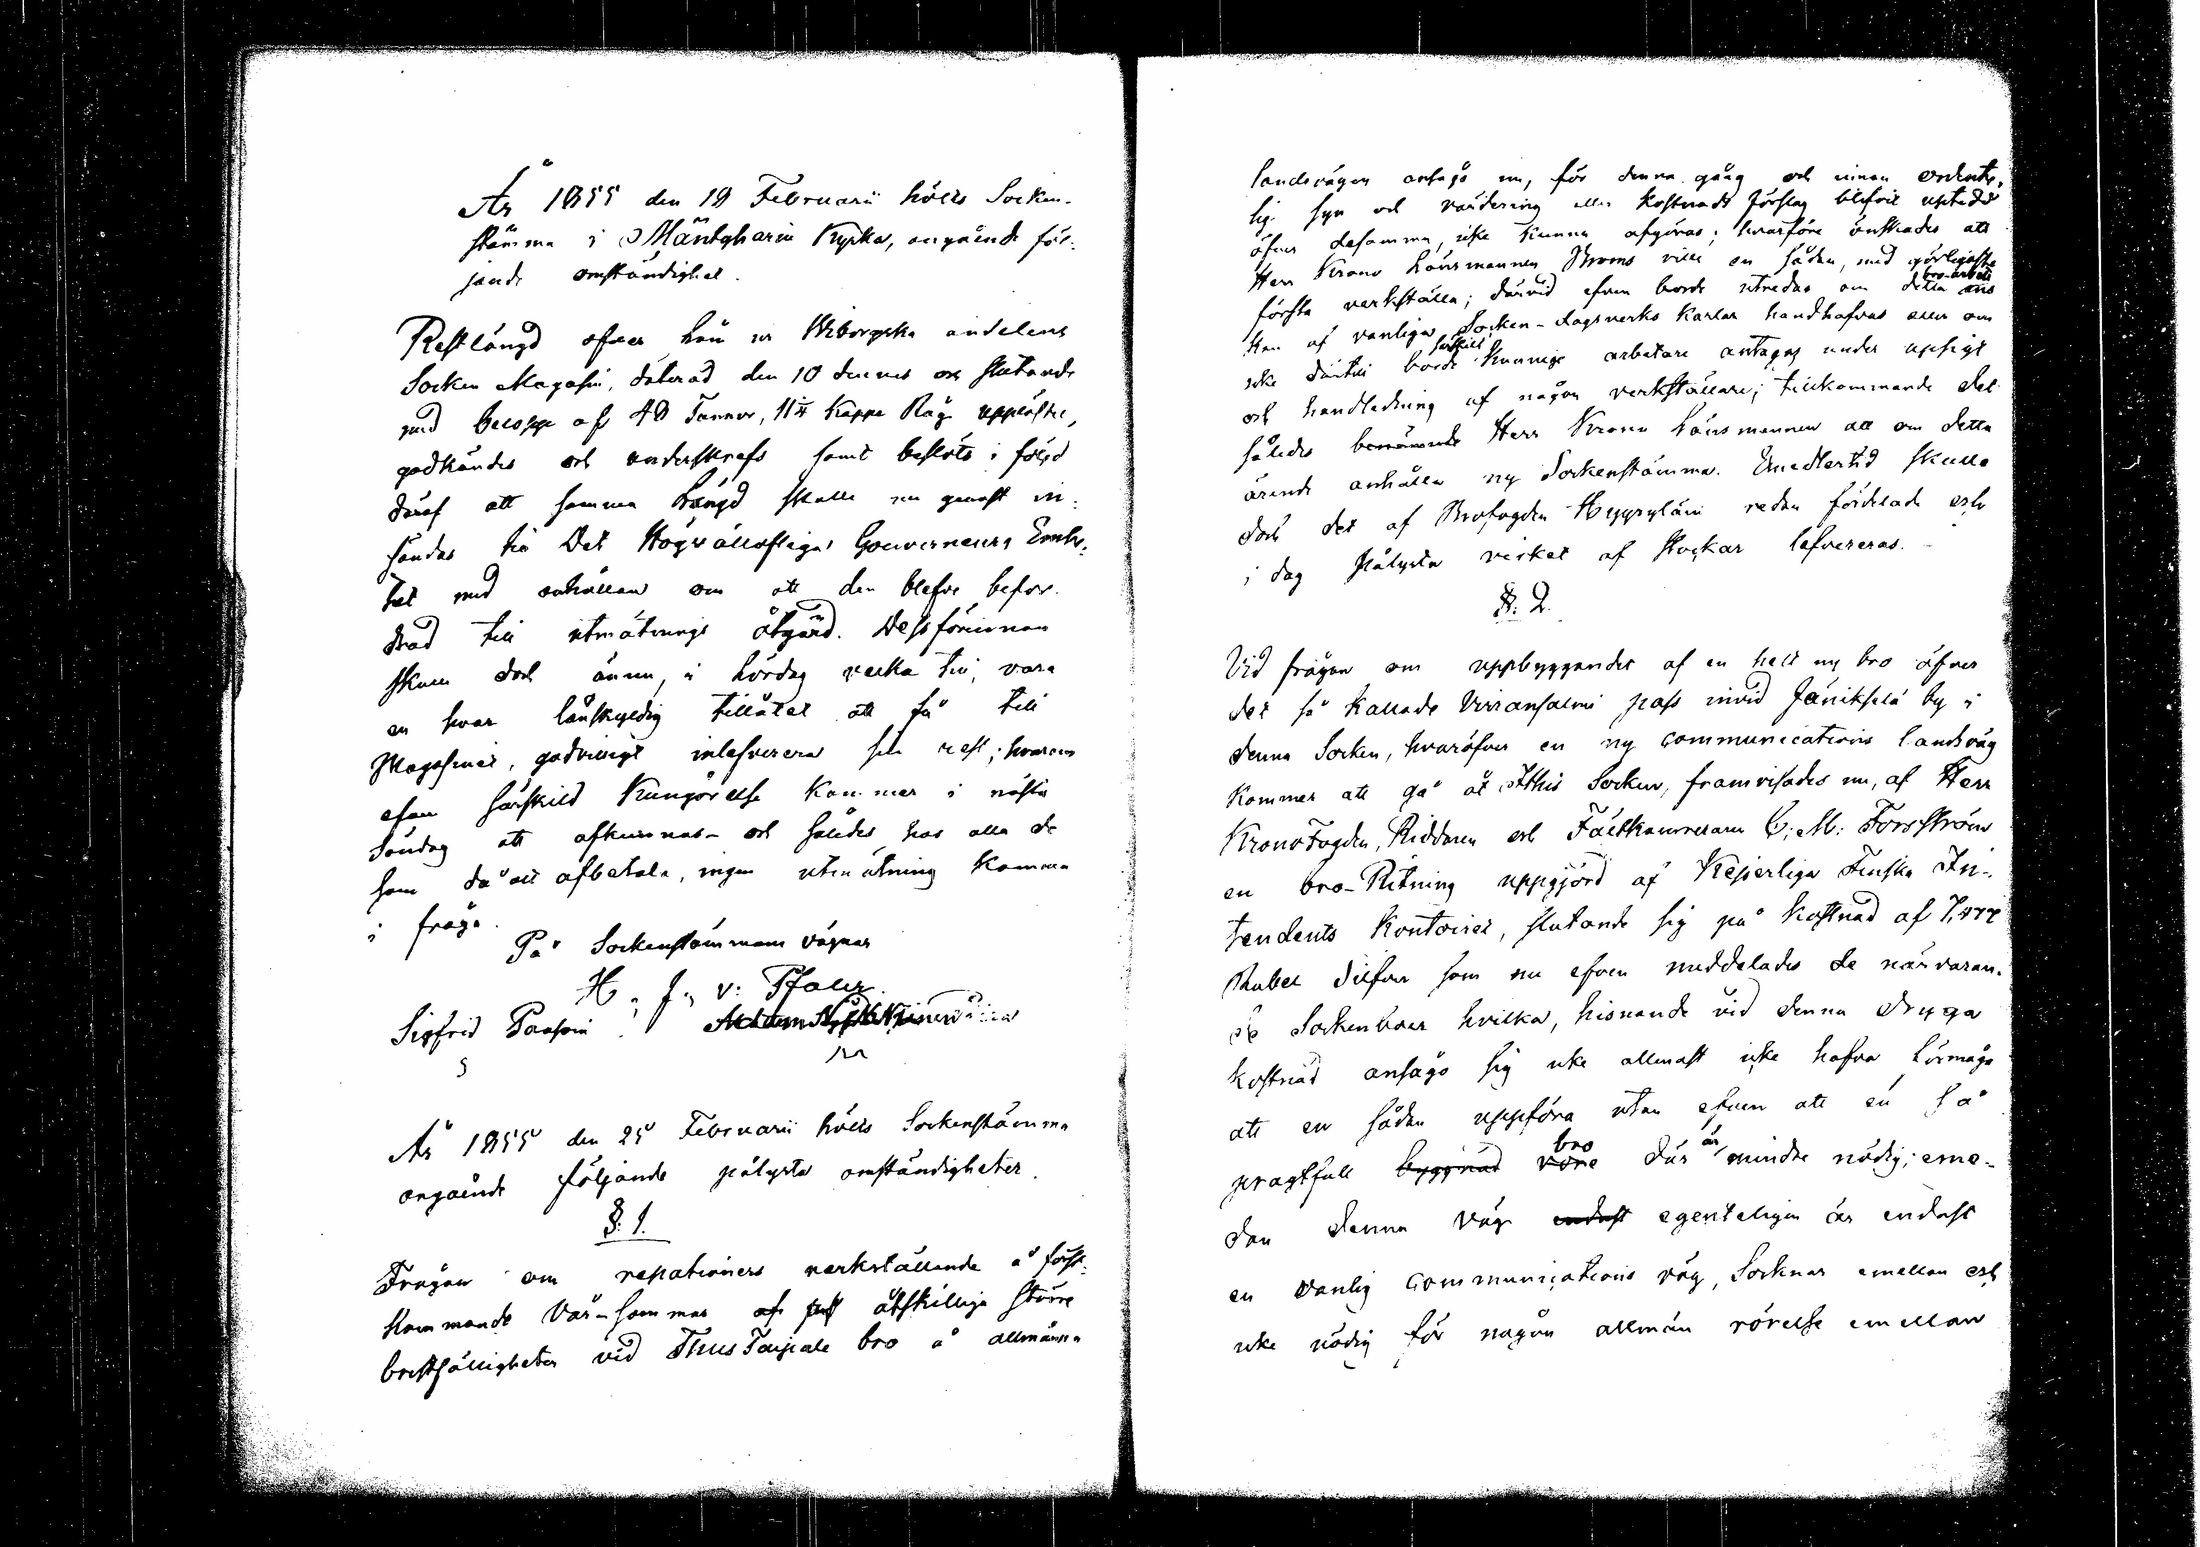 År 1855 den 18 Februarii hölls Socken-
stämma i Mäntyharju Kyrka, angående föl-
jande omständighet.
Restlängd öfver Lån ur Wiborgska andelens
Socken Magasin, daterad den 10 dennes och slutande
med belopp af 48 Tunnor, Kappa Råg upplästes,
godkändes och underskrefs samt beslöts i följd
däraf att samma Längd skulle nu genast in-
sändas till Det Högvällofliga Gouverneurs Embe-
tet med anhållan om att den blefve befor-
drad till utmätnings åtgärd. Dessförinnan
skulle dock ännu, i Lördag vecka till, vara
en hvar låntskyldig tillåtet att få till
Magasinet, godvilligt inleverera sin rest; hvarom
efven särskild Kungörelse kommer i nästa
Söndag att afkunnas och således hos alla de
som då allt afbetala, ingen utmätning komma
i fråga.
På Sockenstämmans vägnar
H: J: v: Pfaler.
Sigfrid Paasoin
År 1855 den 25 Februarii hölls Sockenstämma
angående följande pålysta omständigheter.
§. 1.
Frågan om reparationers verkställande å först-
kommande Vår-sommar af åtskilliga större
bristfälligheter vid Thus Taipale bro å allmänna
landsvägen ansågs nu, för denna gång och innan ordent-
lig syn och värdering eller Kostnads förslag blifvit uptadd
öfver desamma, icke kunna afgöras; hvarföre önskades att
Herr Krono Länsmannen Broms ville en sådan, med görligaste
första verkställa; därvid efven borde utredas om detta bro-arbete
kan af vanliga Socken-dagsverks Karlar handhafvas eller om
icke därtill borde särskilt Kunnige arbetare antagas under upsigt
och handledning af någon verkställare; tillkommande det
således benämnde Herr Krono Länsmannen att om detta
ärende anhålla ny Sockenstämma. Emedlertid skulle
dock det af Brofogden Hyyryläin redan fördelade och
i dag pålysta virket af stockar lefvereras.
§. 2.
Vid frågan om uppbyggandet af en helt ny bro öfver
det så kallade Virransalmi pass invid Jäniksalå by i
denna Socken, hvaröfver en ny communications landsväg
kommer att gå åt Ithis Socken, framvisades nu, af Herr
KronoFogden, Riddaren och Fältkamreraren C: M: Forsström
en bro-Ritning uppgjord af Kejserliga Finska In-
tendents Kontoiret, slutande sig på kostnad af
Rubel Silfver som nu efven meddelades de närvaran-
de Sockenboer hvilka, hisnande vid denna dryga
kostnad ansågo sig icke allenast icke hafva Förmåga
att en sådan uppföra utan efven att en så
pragtfull byggnad vore bro där är mindre nödig; eme-
dan denna väg endast egenteligen är endast
en vanlig communications väg, Socknar emellan och
icke nödig för någon allmän rörelse emellan